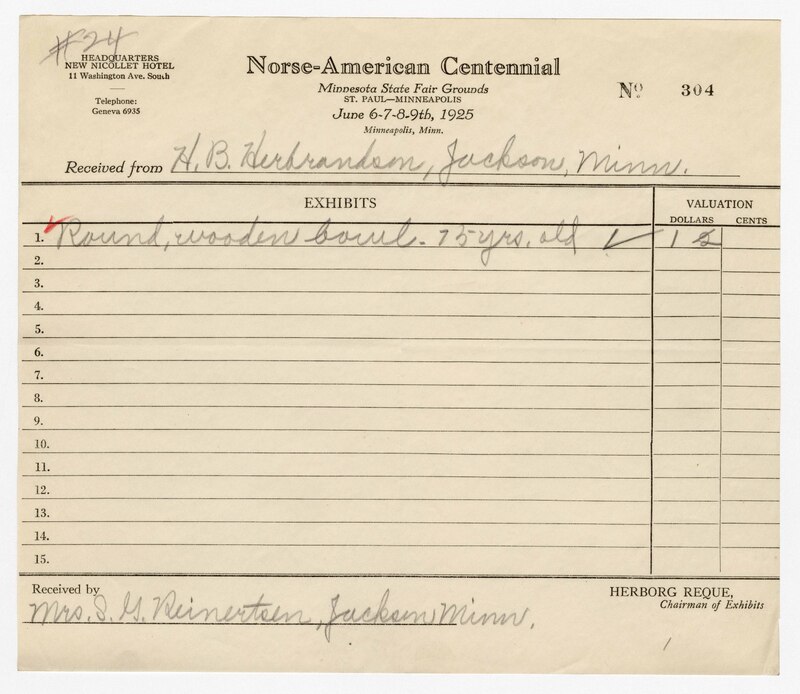 #24
HEADQUARTERS
NEW NICOLLET HOTEL
11 Washington Ave. South
Telephone:
Geneva 6935
Norse-American Centennial
Minnesota State Fair Grounds
ST. PAUL—MINNEAPOLIS
June 6-7-8-9th, 1925
Minneapolis, Minn.
Nº 304
Received from H. B. Herbrandson, Jackson, Minn.
EXHIBITS VALUATION
DOLLARS CENTS
1. Round, wooden bowl - 75 yrs. old ✓ 15
2.
3.
4.
5.
6.
7.
8.
9.
10.
11.
12.
13.
14.
15.
Received by
Mrs. S. G. Reinertsen, Jackson, Minn.
HERBORG REQUE,
Chairman of Exhibits